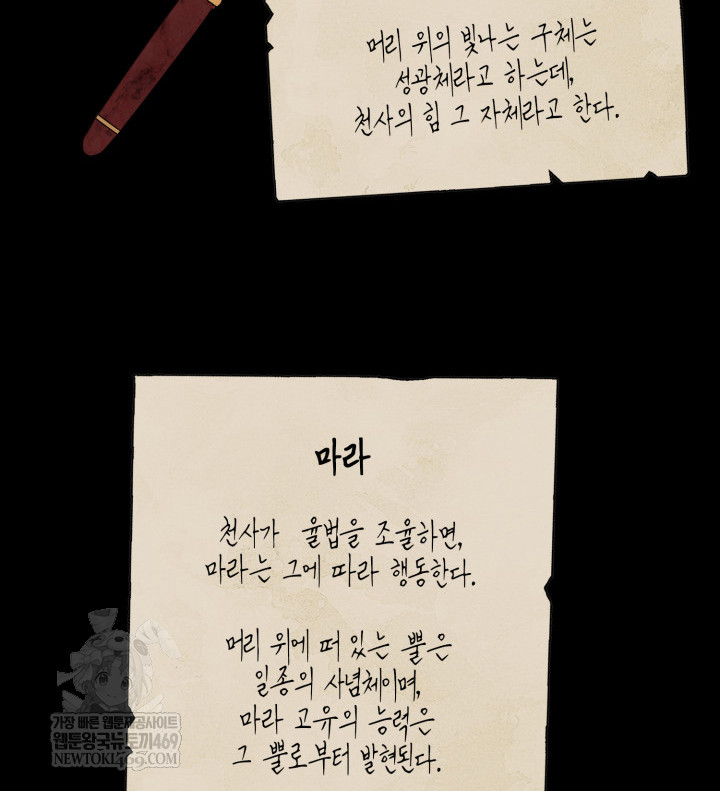 머리 위의 빛나는 구체는
성광체라고 하는데,
천사의 힘 그 자체라고 한다.
마라
천사가 율법을 조율하면,
마라는 그에 따라 행동한다.
머리 위에 떠 있는 뿔은
일종의 사념체이며,
마라 고유의 능력은
그 뿔로부터 발현된다.
가장 빠른 웹툰제공사이트
웹툰왕국뉴토끼469
NEWTOKI469.COM